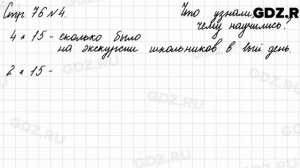 Стр 76 №4.
Что узнали.
Чему научились?
GDZ.RU
4 × 15 - сколько было
на экскурсии школьников в 1ый день.
2 × 15 -